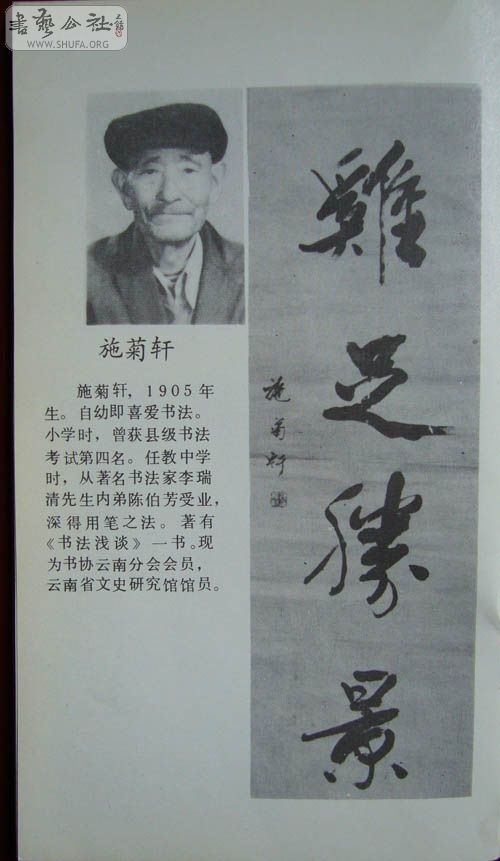 書藝公社
WWW.SHUFA.ORG
施菊轩
施菊轩，1905年
生。自幼即喜爱书法。
小学时，曾获县级书法
考试第四名。任教中学
时，从著名书法家李瑞
清先生内弟陈伯芳受业，
深得用笔之法。著有
《书法浅谈》一书。现
为书协云南分会会员，
云南省文史研究馆馆员。
雞足勝景
施菊軒